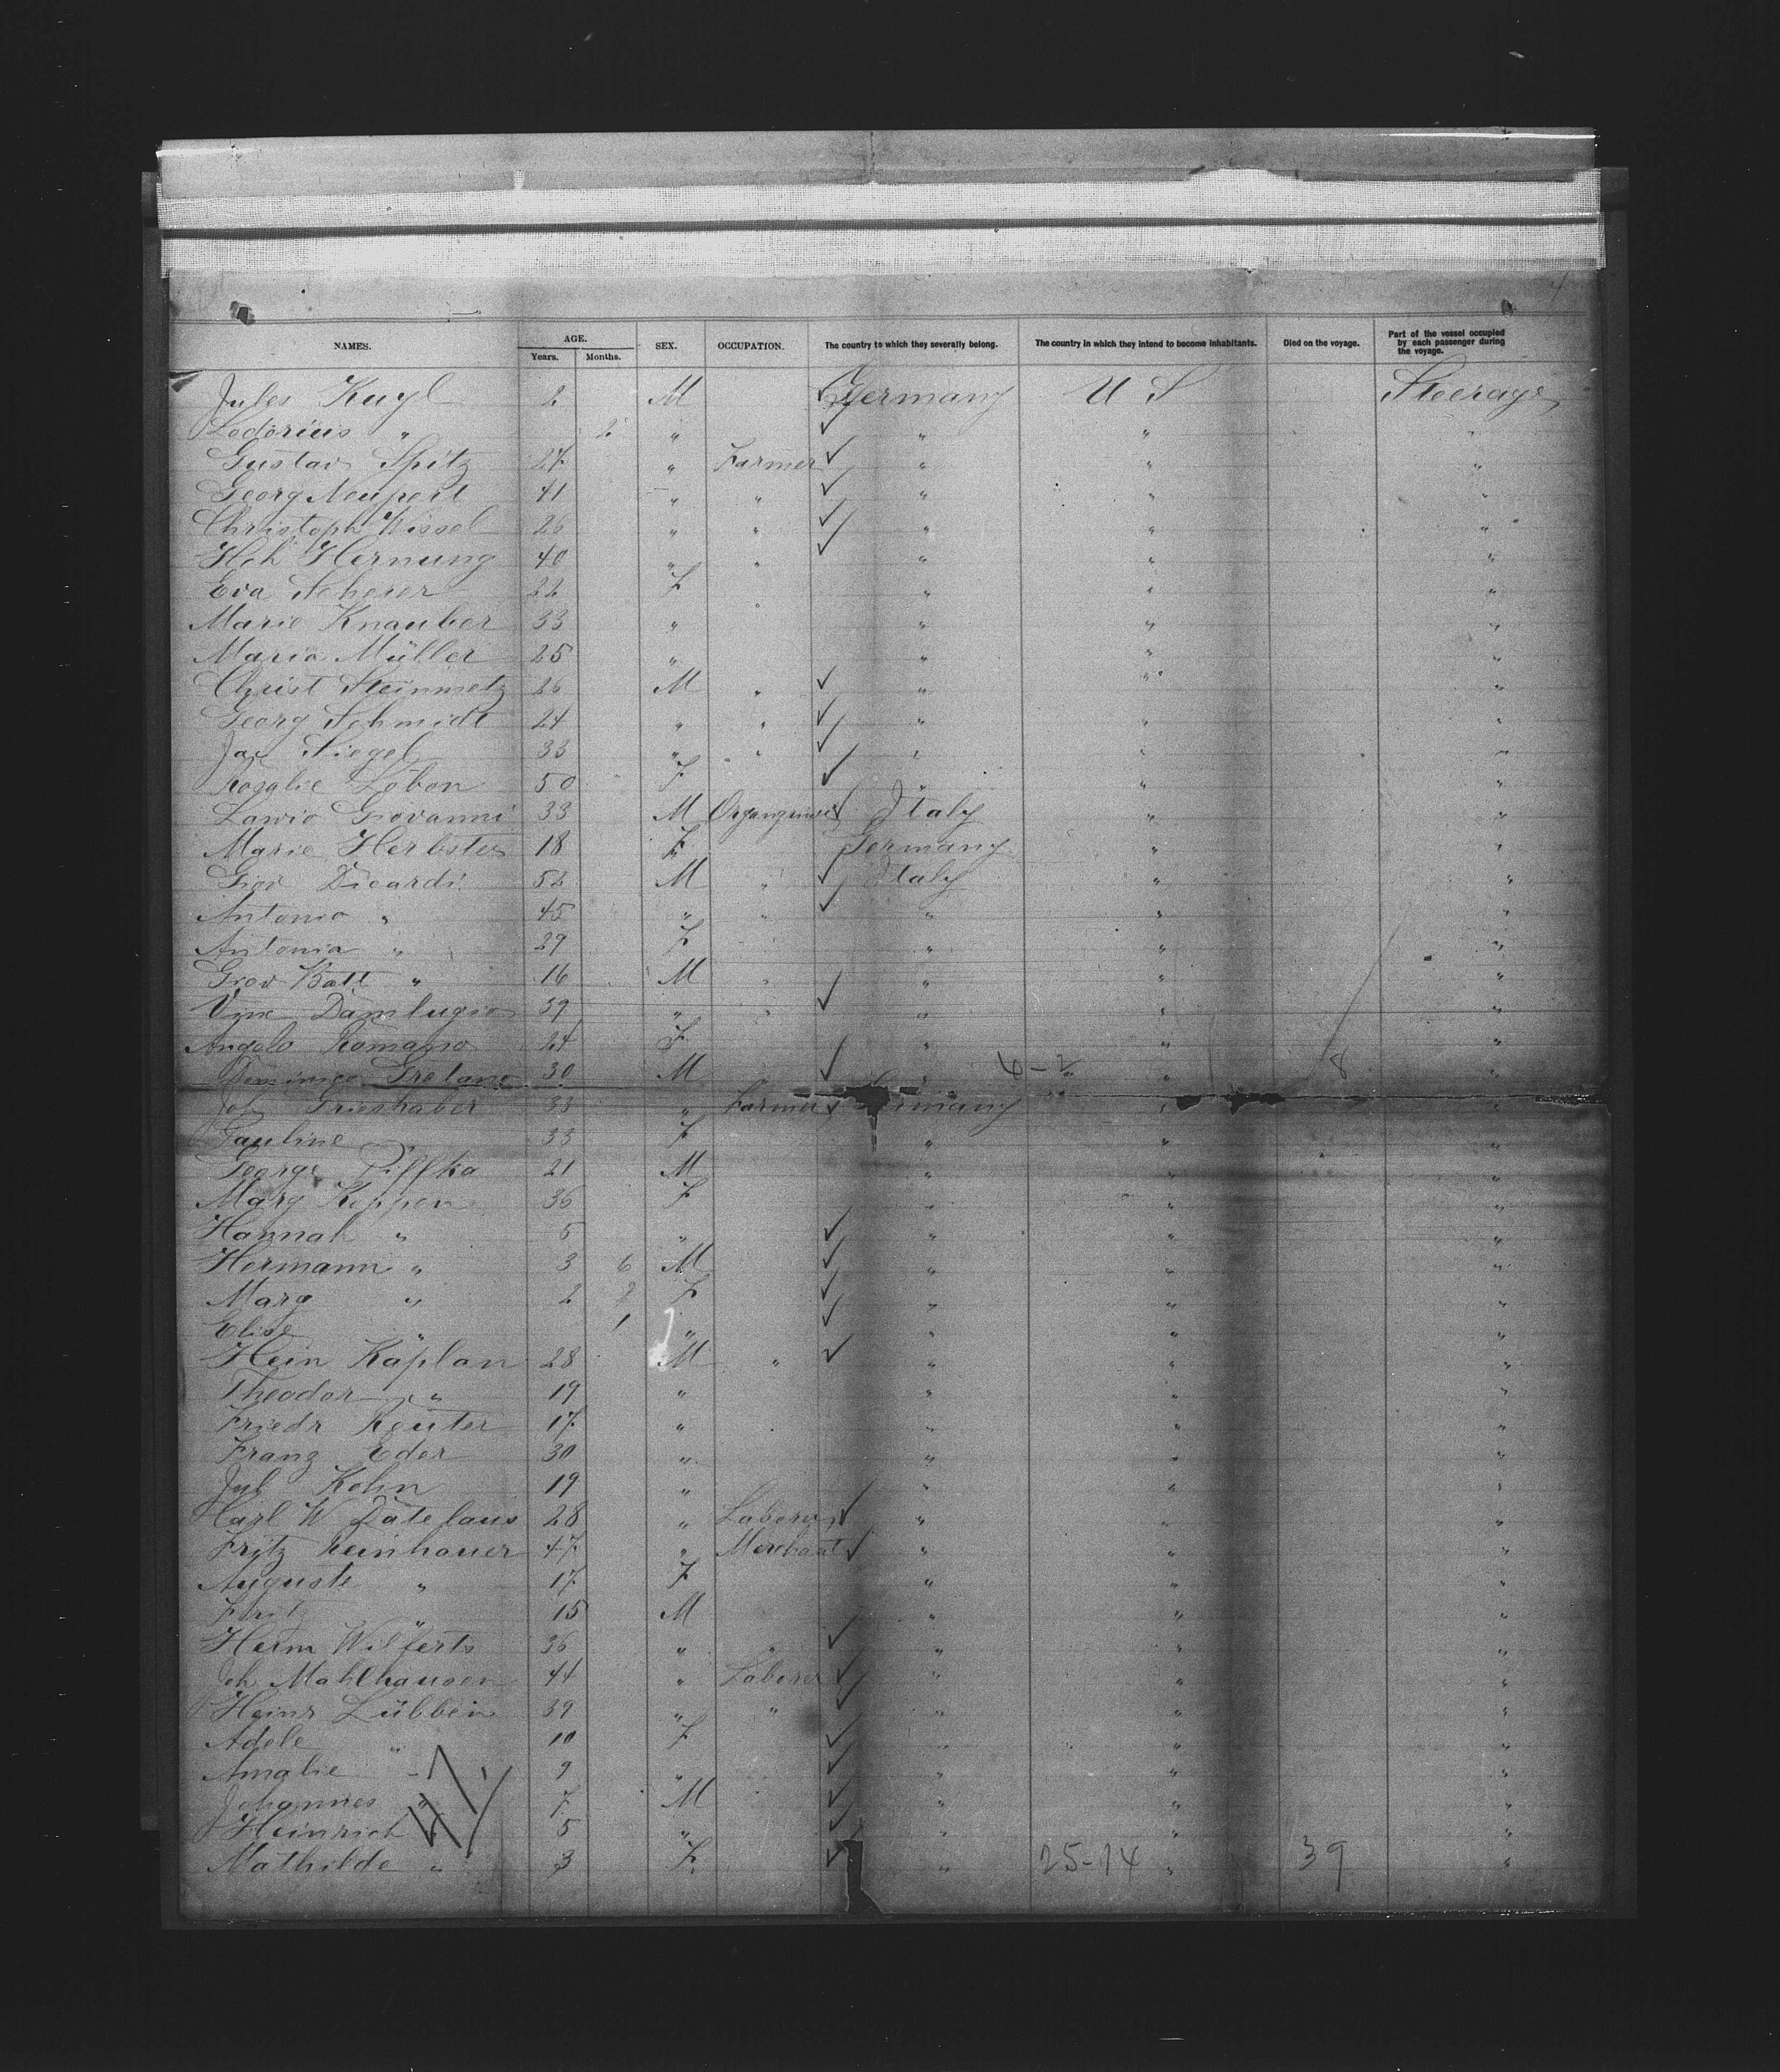 4
NAMES. AGE. Years. Months. SEX. OCCUPATION. The country to which they severally belong. The country in which they intend to become inhabitants. Died on the voyage. Part of the vessel occupied by each passenger during the voyage.
Jules Kugl 2 M Germany U S Steerage
" 2 " " " "
Gustav Spitz 27 " Farmer " " "
Georg Neupert 41 " " " " "
Christoph Wissel 26 " " " " "
Hch Hernung 40 " " " " "
Eva Scherer 22 F " " "
Marie Knauber 33 " " " "
Maria Müller 25 " " " "
Christ Steinmetz 26 M " " " "
Georg Schmidt 24 " " " " "
Jac Siegel 33 " " " " "
Rosalie Lobon 50 F " " "
Giovanni 33 M Italy " "
Marie Herbster 18 F Germany " "
Giov Dicardi 52 M " Italy " "
Antonio " 45 " " " " "
Antonia " 29 F " " "
Giov Batt " 16 M " " "
39 " " " " "
Angelo Romano 24 F " " "
30 M " 8 "
Jos Grieshaber 33 " Farmer Germany " "
Pauline " 33 F " " "
George Piffka 21 M " " "
Marg Koppen 36 F " " "
Hannah " 5 " " " "
Hermann " 3 6 M " " "
Marg " 2 F " " "
Elise " 1 " " " "
Hein Kaplan 28 M " " " "
Theodor " 19 " " " "
Friedr Reuter 17 " " " "
Franz Eder 30 " " " "
Jul Kohn 19 " " " "
Karl W 28 " Laborer " " "
Fritz Reinhauer 47 " Merchant " " "
Auguste " 17 F " " "
Fritz " 15 M " " "
Herm Wilferts 36 " " " " "
Joh Mahlhausen 44 " Laborer " " "
Heinr Lübben 39 " " " " "
Adele " 10 F " " "
Amalie 9 " " " "
Johannes " 7 M " " "
Heinrich 5 " " " "
Mathilde " 3 F " 25-14 " 39 "